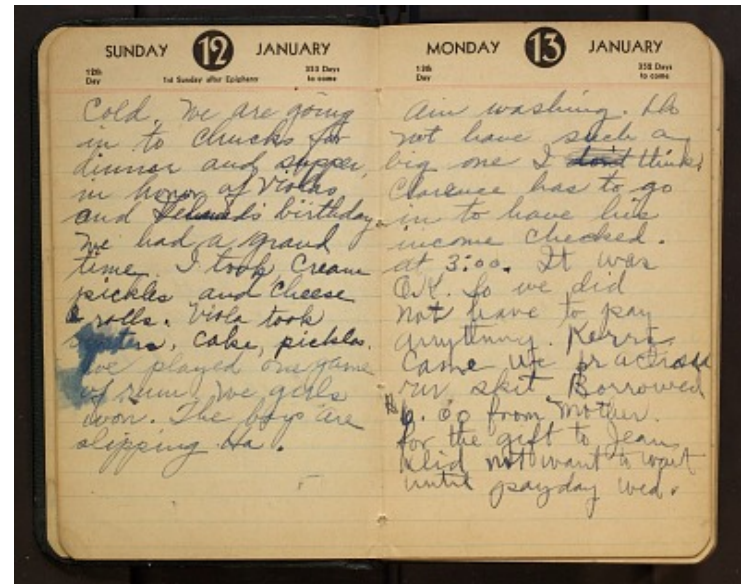 SUNDAY 12 JANUARY
12th Day
1st Sunday after Epiphany
353 Days to come
Cold. We are going
in to Chucks for
dinner and supper,
in honor of Violas
and birthday.
We had a grand
time. I took Cream
pickles and cheese
& rolls. Viola took
cake, pickles.
We played one game
of rum, we girls
won. The boys are
slipping Ha.
MONDAY 13 JANUARY
13th Day
352 Days to come
Am washing. Do
not have such a
big one I dont think.
Clarence has to go
in to have his
income checked.
at 3:00. It was
O.K. So we did
not have to pay
anything.
Came we practiced
our skit Borrowed
6.00 from Mother
for the gift to Jean
did not want to wait
until payday Wed.